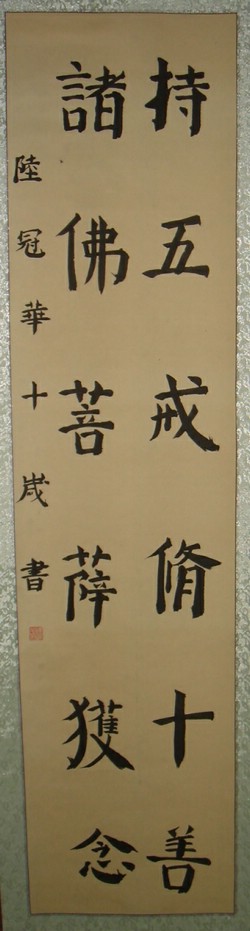 持五戒脩十善
諸佛菩薩獲念
陸冠華十歲書